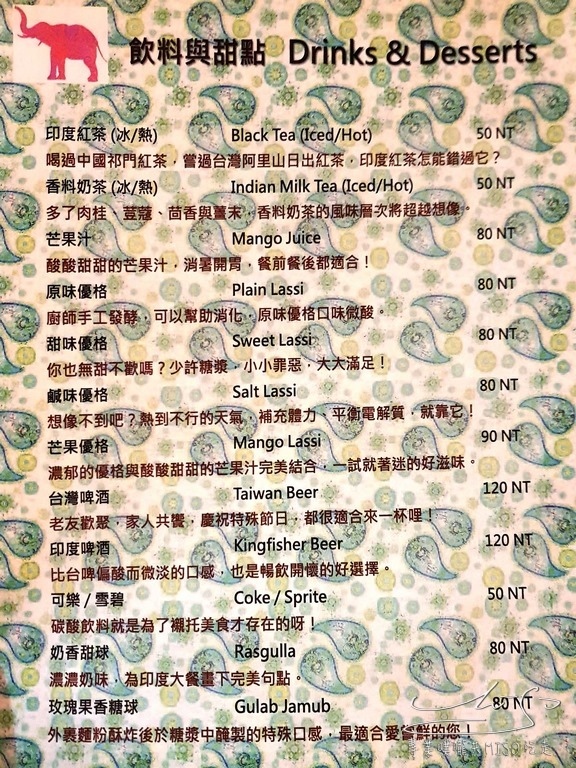 飲料與甜點 Drinks & Desserts
印度紅茶 (冰/熱) Black Tea (Iced/Hot) 50 NT
喝過中國祁門紅茶，嘗過台灣阿里山日出紅茶，印度紅茶怎能錯過它？
香料奶茶 (冰/熱) Indian Milk Tea (Iced/Hot) 50 NT
多了肉桂、荳蔻、茴香與薑末，香料奶茶的風味層次將超越想像。
芒果汁 Mango Juice 80 NT
酸酸甜甜的芒果汁，消暑開胃，餐前餐後都適合！
原味優格 Plain Lassi 80 NT
廚師手工發酵，可以幫助消化，原味優格口味微酸。
甜味優格 Sweet Lassi 80 NT
你也無甜不歡嗎？少許糖漿，小小罪惡，大大滿足！
鹹味優格 Salt Lassi 80 NT
想像不到吧？熱到不行的天氣，補充體力、平衡電解質，就靠它！
芒果優格 Mango Lassi 90 NT
濃郁的優格與酸酸甜甜的芒果汁完美結合，一試就著迷的好滋味。
台灣啤酒 Taiwan Beer 120 NT
老友歡聚，家人共饗，慶祝特殊節日，都很適合來一杯哩！
印度啤酒 Kingfisher Beer 120 NT
比台啤偏酸而微淡的口感，也是暢飲開懷的好選擇。
可樂 / 雪碧 Coke / Sprite 50 NT
碳酸飲料就是為了襯托美食才存在的呀！
奶香甜球 Rasgulla 80 NT
濃濃奶味，為印度大餐畫下完美句點。
玫瑰果香糖球 Gulab Jamub 80 NT
外裹麵粉酥炸後於糖漿中醃製的特殊口感，最適合愛嘗鮮的您！